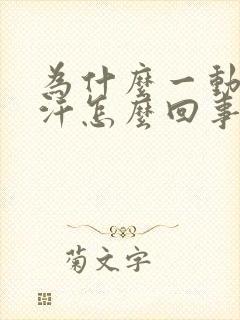 為什麼一動
汗怎麼回事
菊文字